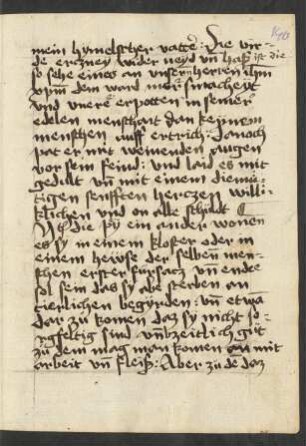 mein hymelscher vatter: Die vir-
de erczney wider neyd vn̄ haß ist die
so sehe eines an vnsern herren ihm
xpm̄ dem ward mer smacheyt
vnd vnere erpotten in seiner
edelen menschait dan keynem
menschen auff ertrich: Danoch
pat er mit weinenden augen
vor sein feind: vnd laid es mit
gedult vn̄ mit einem diemü-
tigen senfften herczen willi-
klichen vnd on alle schuld
die by ein ander wonen
es sy in einem kloster oder in
einem hewse der selben men-
schen erster fürsacz vn̄ ende
sol sein das sy absterben an
tierlichen begyrden: vn̄ etwa
dar zu komen daz sy nicht so-
rgfeltig sind vmb zeitlich gut
zu dem mag man komen an mit
arbeit vn̄ fleiß: Aber zu de daz